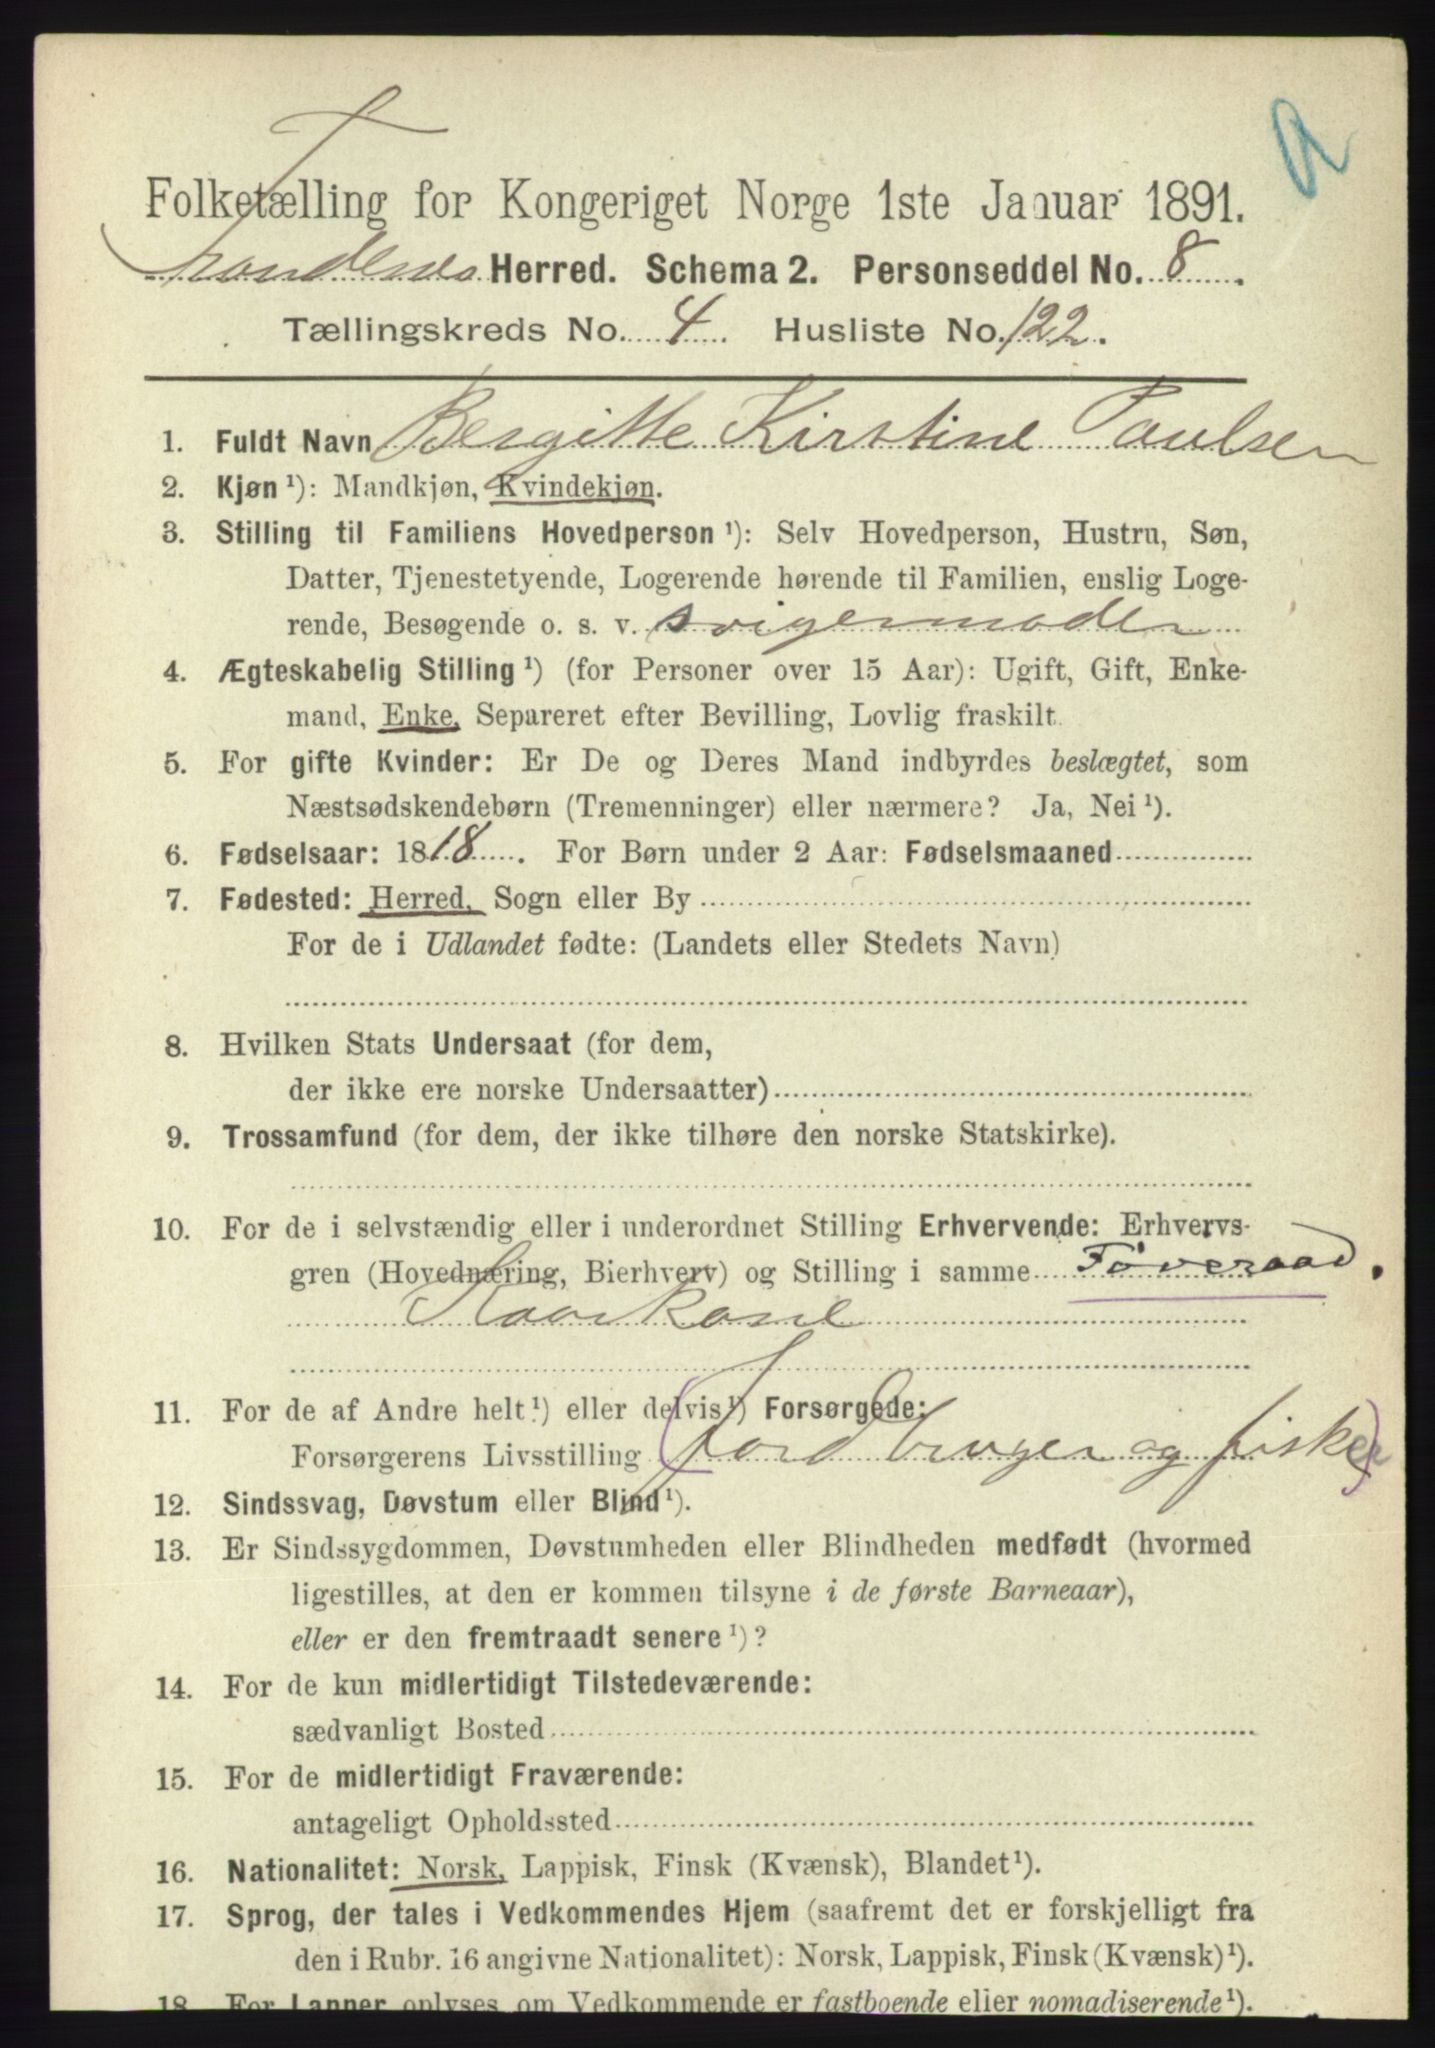 Folketælling for Kongeriget Norge 1ste Januar 1891.
Trondenes Herred. Schema 2. Personseddel No. 8.
Tællingskreds No. 4. Husliste No. 122.
1. Fuldt Navn Bergitte Kirstine Paulsen
2. Kjøn ¹): Mandkjøn, Kvindekjøn.
3. Stilling til Familiens Hovedperson ¹): Selv Hovedperson, Hustru, Søn,
Datter, Tjenestetyende, Logerende hørende til Familien, enslig Loge-
rende, Besøgende o. s. v. svigermoder
4. Ægteskabelig Stilling ¹) (for Personer over 15 Aar): Ugift, Gift, Enke-
mand, Enke, Separeret efter Bevilling, Lovlig fraskilt.
5. For gifte Kvinder: Er De og Deres Mand indbyrdes beslægtet, som
Næstsødskendebørn (Tremenninger) eller nærmere? Ja, Nei ¹).
6. Fødselsaar: 1818. For Børn under 2 Aar: Fødselsmaaned
7. Fødested: Herred, Sogn eller By
For de i Udlandet fødte: (Landets eller Stedets Navn)
8. Hvilken Stats Undersaat (for dem,
der ikke ere norske Undersaatter)
9. Trossamfund (for dem, der ikke tilhøre den norske Statskirke).
10. For de i selvstændig eller i underordnet Stilling Erhvervende: Erhvervs-
gren (Hovednæring, Bierhverv) og Stilling i samme Føderaad.
Kaarkone
11. For de af Andre helt ¹) eller delvis ¹) Forsørgede:
Forsørgerens Livsstilling (Jordbruger og fisker)
12. Sindssvag, Døvstum eller Blind ¹).
13. Er Sindssygdommen, Døvstumheden eller Blindheden medfødt (hvormed
ligestilles, at den er kommen tilsyne i de første Barneaar),
eller er den fremtraadt senere ¹)?
14. For de kun midlertidigt Tilstedeværende:
sædvanligt Bosted
15. For de midlertidigt Fraværende:
antageligt Opholdssted
16. Nationalitet: Norsk, Lappisk, Finsk (Kvænsk), Blandet ¹).
17. Sprog, der tales i Vedkommendes Hjem (saafremt det er forskjelligt fra
den i Rubr. 16 angivne Nationalitet): Norsk, Lappisk, Finsk (Kvænsk) ¹).
18. For Lapper oplyses, om Vedkommende er fastboende eller nomadiserende ¹).